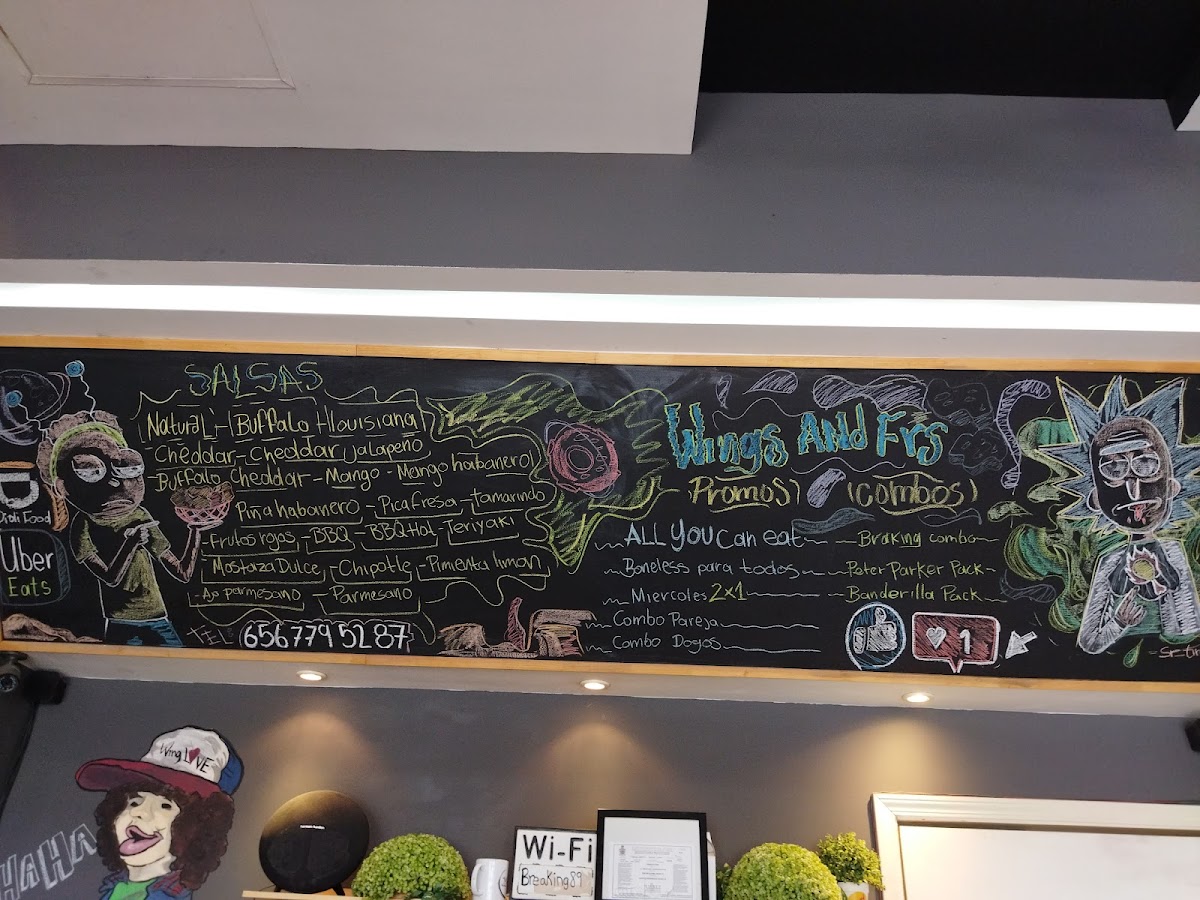 SALSAS
Natural - Buffalo - Louisiana
Cheddar - Cheddar jalapeño
Buffalo Cheddar - Mango - Mango habanero
Piña habanero - Picafresa - tamarindo
- Frutos rojos - BBQ - BBQ Hot - Teriyaki
- Mostaza Dulce - Chipotle - Pimenta limon
- Ajo parmesano - Parmesano
Tel: 656 779 52 87
Didi Food
Uber
Eats
Wings AND Frs
Promos
Combos
ALL YOU can eat
Boneless para todos
Miercoles 2x1
Combo Pareja
Combo Dogos
Braking combo
Peter Parker Pack
Banderilla Pack
1
Wing LOVE
HAHA
harman/kardon
Wi-Fi
Breaking89